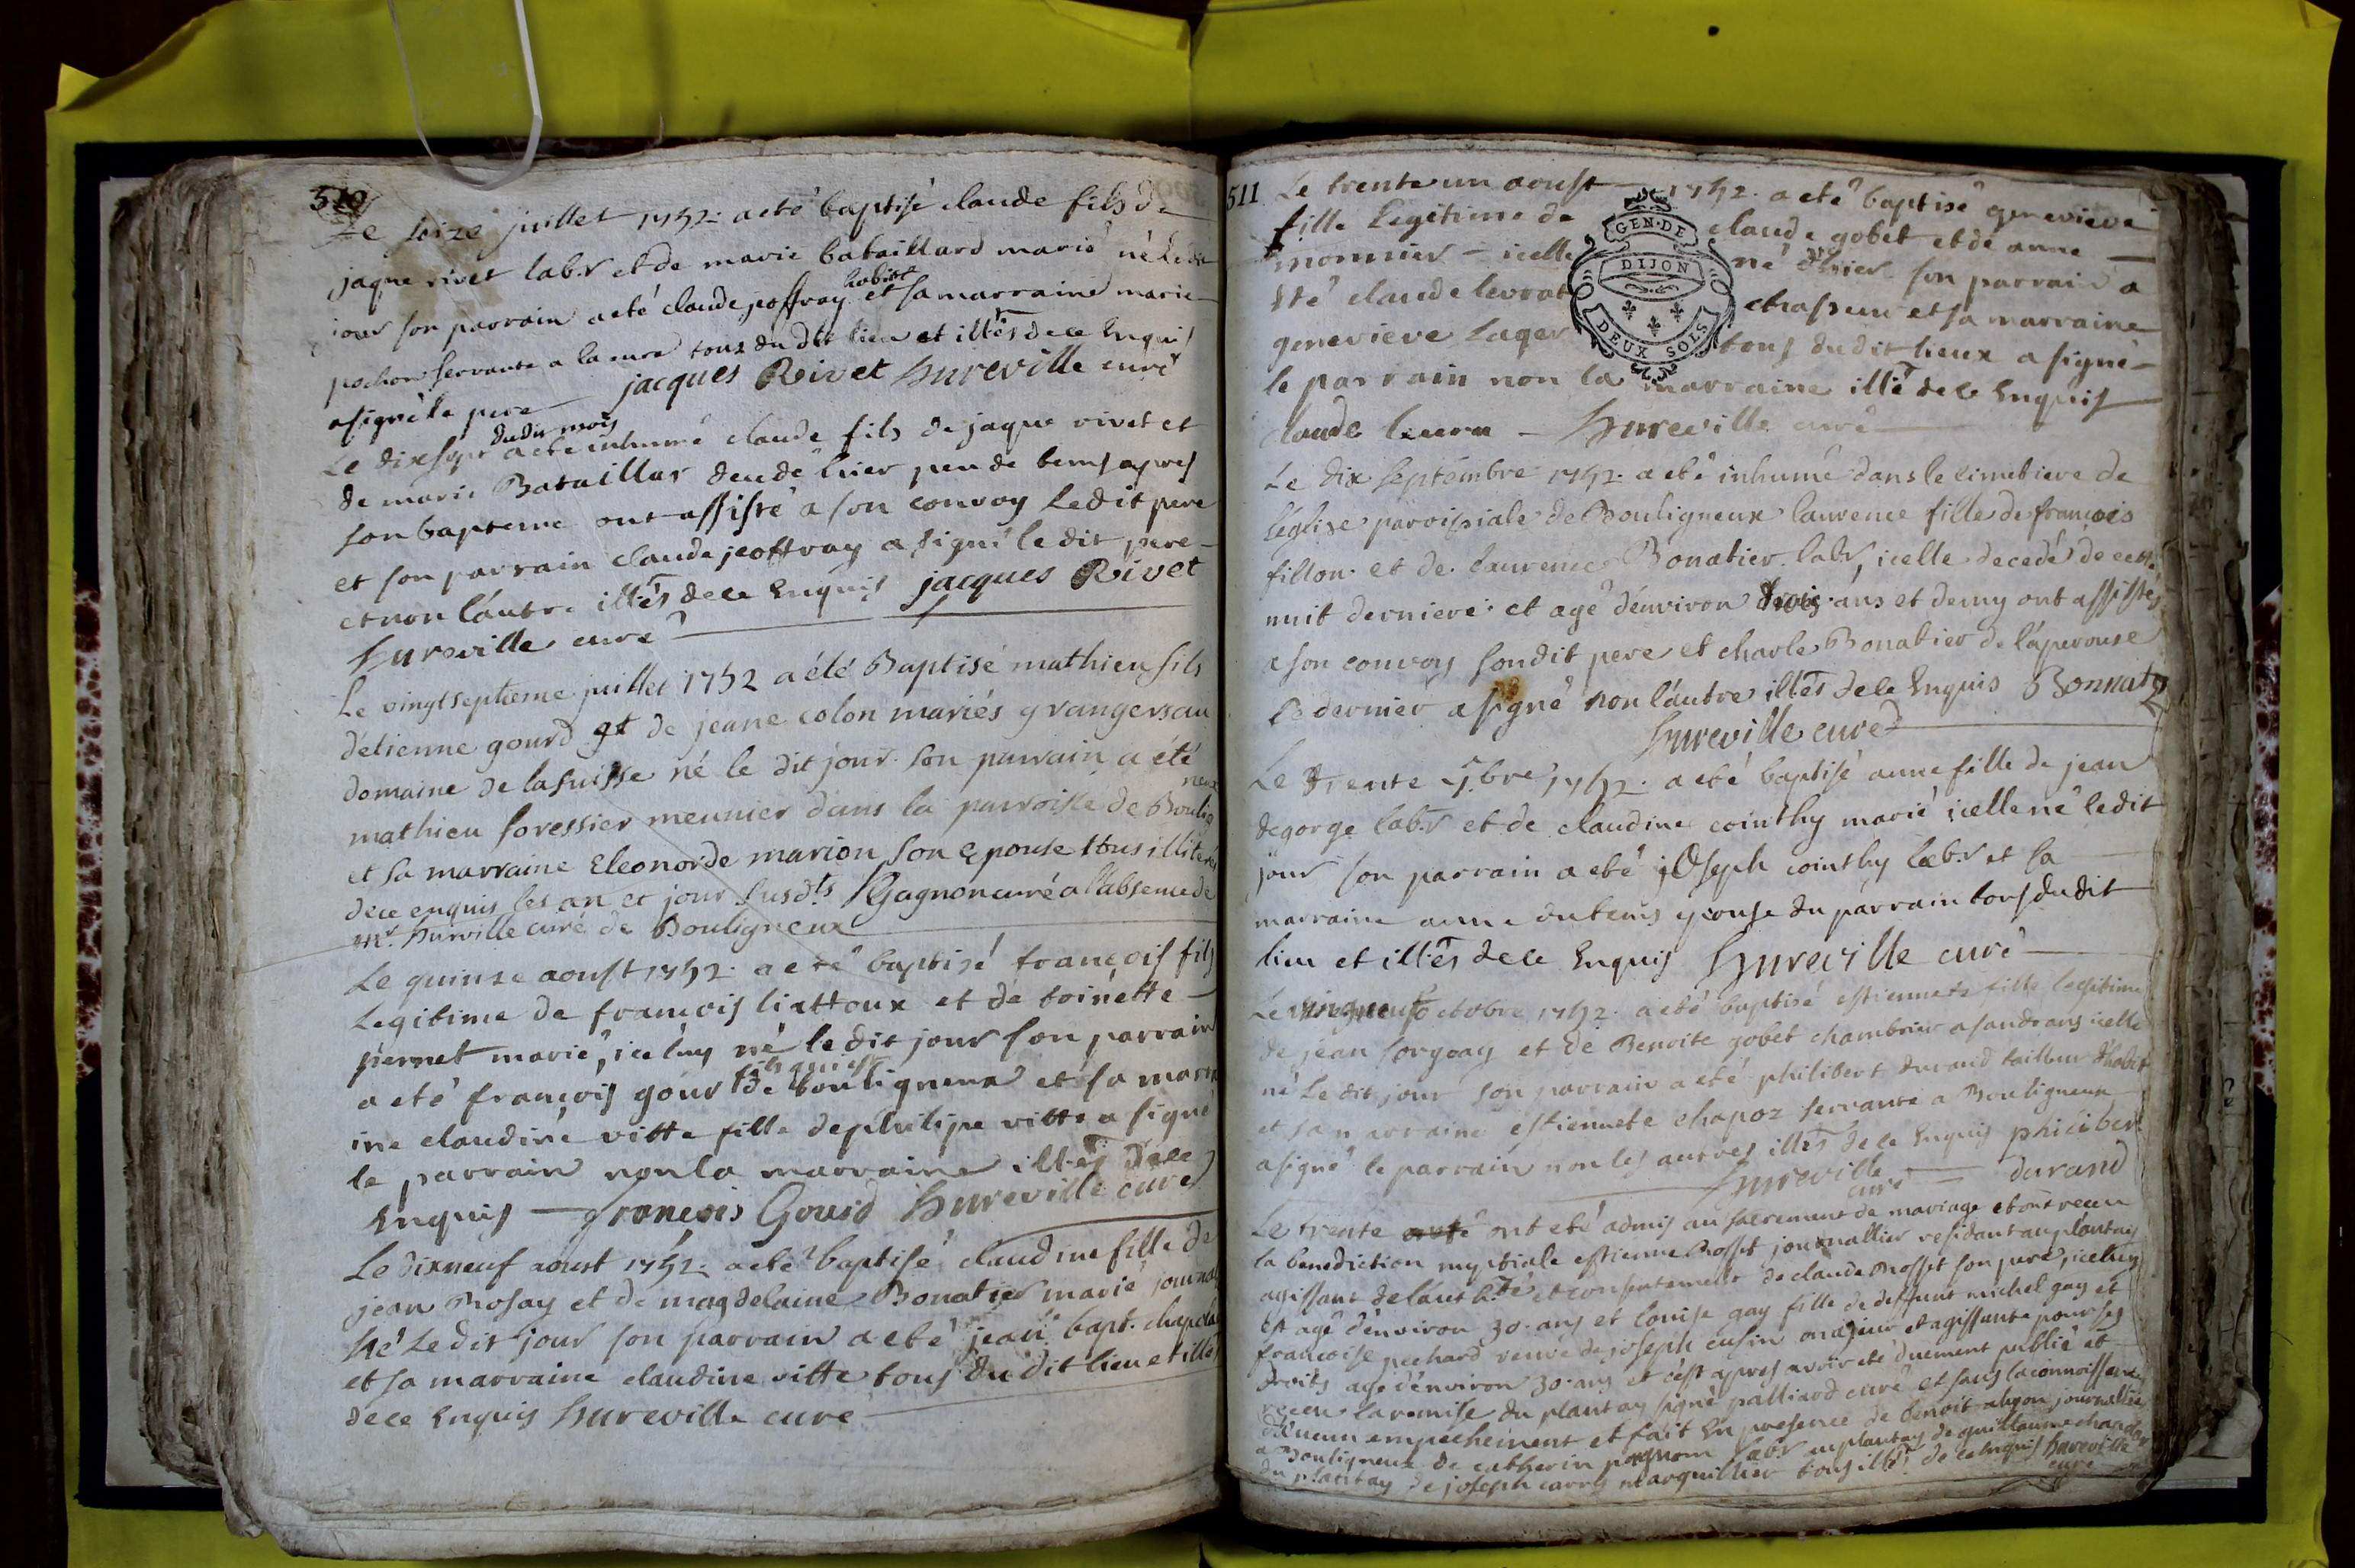 510
Le seize juillet 1752. a eté baptisé claude fils de
jaque rivet lab.r et de marie bataillard marié né le dit
jour son parrain a eté claude jeoffray habit et sa marraine marie
pochon servante a la cure tous du dit lieu et illtés de ce Enquis
a signé le pere jacques Rivet hureville curé
Le dixsept dudit mois a eté inhumé claude fils de jaque rivet et
de marie Bataillar decedé hier peu de tems apres
son bapteme ont assisté a son convoy Ledit pere
et son parrain claude jeoffray a signé le dit pere
et non l'autre illtés de ce Enquis jacques Rivet
hureville curé
Le vingtseptieme juillet 1752 a été Baptisé mathieu fils
d'étienne gourd et de jeane colon mariés grangers au
domaine de la suisse né le dit jour son parrain a été
mathieu foressier meunier dans la parroisse de Bouligneux
et sa marraine Eleonorde marion son Epouse tous illiterés
de ce enquis les an et jour susdts Gagnon curé a l'absence de
mr. hurville curé de Bouligneux
Le quinze aoust 1752. a eté baptisé françois fils
Legitime de françois liattoux et de toinette
pernet marié, iceluy né le dit jour son parrain
a eté françois gour de bouligneux et sa marra
ine claudine vitte fille de philipe vitte a signé
le parrain non la marraine illtés de ce
Enquis françois Gourd hureville curé
Le dixneuf aoust 1752. a eté baptisé claudine fille de
jean Rosay et de magdelaine Bonatier marié journal
né Le dit jour son parrain a eté jean bapt. chapola
et sa marraine claudine vitte tous du dit lieu et illtés
de ce Enquis hureville curé
511 Le trente un aoust 1752. a eté baptisé genevieve
fille Legitime de claude gobet et de anne
monnier icelle né hier son parrain a
eté claude levrat chasseur et sa marraine
genevieve lager tous du dit lieux a signé
le parrain non la marraine illté de ce Enquis
claude hureville curé
GEN·DE
DIJON
DEUX SOLS
Le dix septembre 1752. a eté inhumé dans le cimetiere de
l'église paroissiale de Bouligneux laurence fille de françois
fillon et de laurence Bonatier lab.r, icelle decedé de cette
nuit derniere et agé d'environ trois ans et demy ont assistés
a son convoy son dit pere et charle Bonatier de laperouse
Le dernier a signé non l'autre illtés de ce Enquis Bonnaty
hureville curé
Le trente 7.bre 1752. a eté baptisé anne fille de jean
degorge lab.r et de claudine cointhy marié icelle né ledit
jour son parrain a eté joseph cointhy lab.r et sa
marraine anne dutems epouse du parrain tous du dit
lieu et illtés de ce Enquis hureville curé
Le vingneuf octobre 1752. a eté baptisé estiennete fille legitime
de jean sorgoay et de Benoite gobet chambrier a sandrans icelle
né Le dit jour son parrain a eté philibert durand tailleur d'habit
et sa marraine estiennete chapoz servante a Bouligneux
a signé le parrain non les autres illtés de ce Enquis philiber
hureville curé durand
Le trente ont eté admis au sacrement de mariage et ont receu
la benediction nuptiale estienne Rosset journallier residant au plantay
agissant de l'authté et consentement de claude Rosset son pere, iceluy
est agé d'environ 30. ans et louise gay fille de deffunt michel gay et
francoise pechard veuve de joseph cusin majeure et agissante pour ses
droits agé d'environ 30. ans et c'est apres avoir eté duement publié et
receu la remise du plantay signé palliard curé et sans la connoissance
d'aucun empechement et fait En presence de benoit alyon journallier
a Bouligneux de catherin pognon lab.r au plantay de guillaume chanel
du plantay de joseph carry marguillier tous illtés de ce Enquis hureville
curé